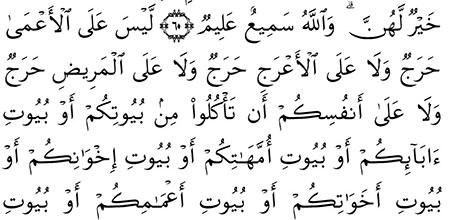 خَيْرٌ لَّهُنَّ ۗ وَٱللَّهُ سَمِيعٌ عَلِيمٌ ﴿٦٠﴾ لَّيْسَ عَلَى ٱلْأَعْمَىٰ
حَرَجٌ وَلَا عَلَى ٱلْأَعْرَجِ حَرَجٌ وَلَا عَلَى ٱلْمَرِيضِ حَرَجٌ
وَلَا عَلَىٰٓ أَنفُسِكُمْ أَن تَأْكُلُوا۟ مِنۢ بُيُوتِكُمْ أَوْ بُيُوتِ
ءَابَآئِكُمْ أَوْ بُيُوتِ أُمَّهَـٰتِكُمْ أَوْ بُيُوتِ إِخْوَٰنِكُمْ أَوْ
بُيُوتِ أَخَوَٰتِكُمْ أَوْ بُيُوتِ أَعْمَـٰمِكُمْ أَوْ بُيُوتِ